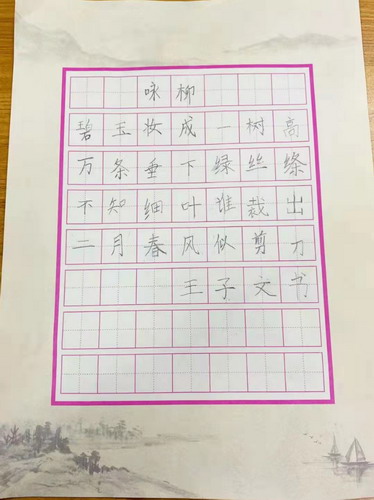 咏柳
碧玉妆成一树高
万条垂下绿丝绦
不知细叶谁裁出
二月春风似剪刀
王子文书